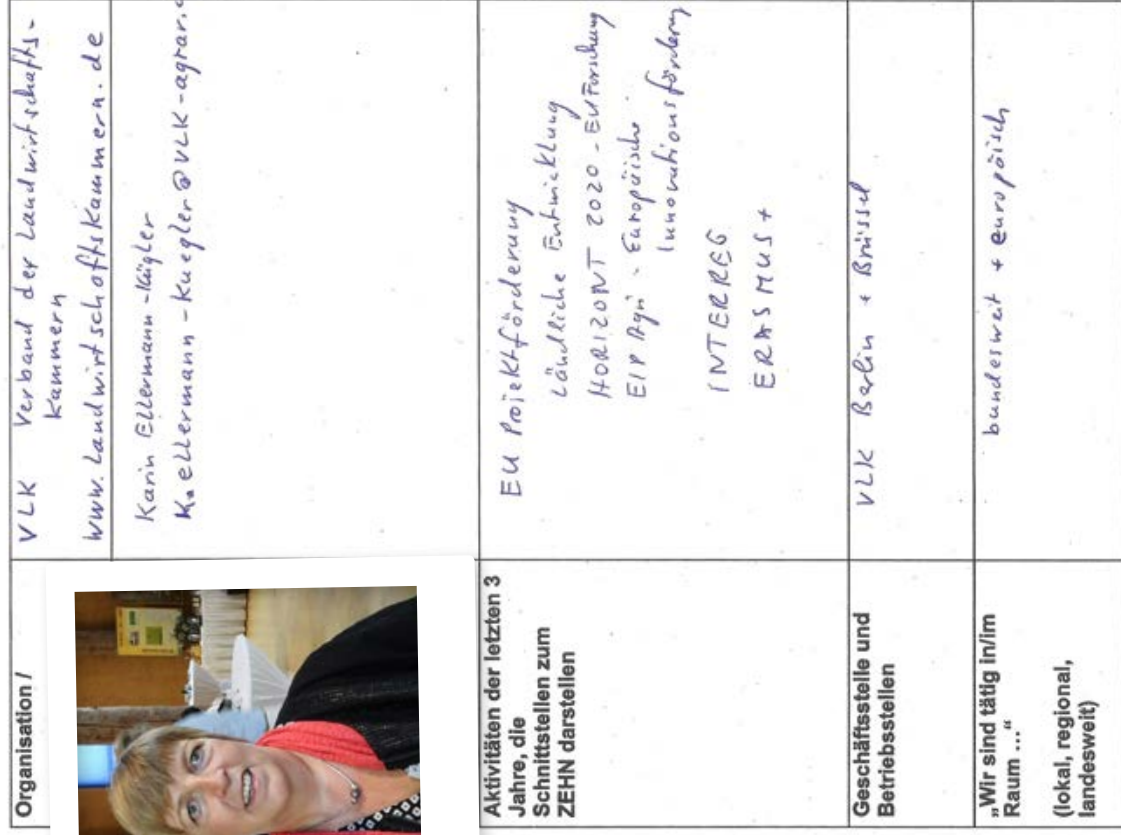 Organisation /
VLK Verband der Landwirtschafts-
kammern
www.Landwirtschaftskammern.de
Karin Ellermann-Kügler
K.ellermann-kuegler@VLK-agrar.
Aktivitäten der letzten 3
Jahre, die
Schnittstellen zum
ZEHN darstellen
EU Projektförderung
Ländliche Entwicklung
HORIZONT 2020 - EU Forschung
EIP Agri - Europäische
Innovationsförderung
INTERREG
ERASMUS+
Geschäftsstelle und
Betriebsstellen
VLK Berlin + Brüssel
„Wir sind tätig in/im
Raum ...“
(lokal, regional,
landesweit)
bundesweit + europäisch